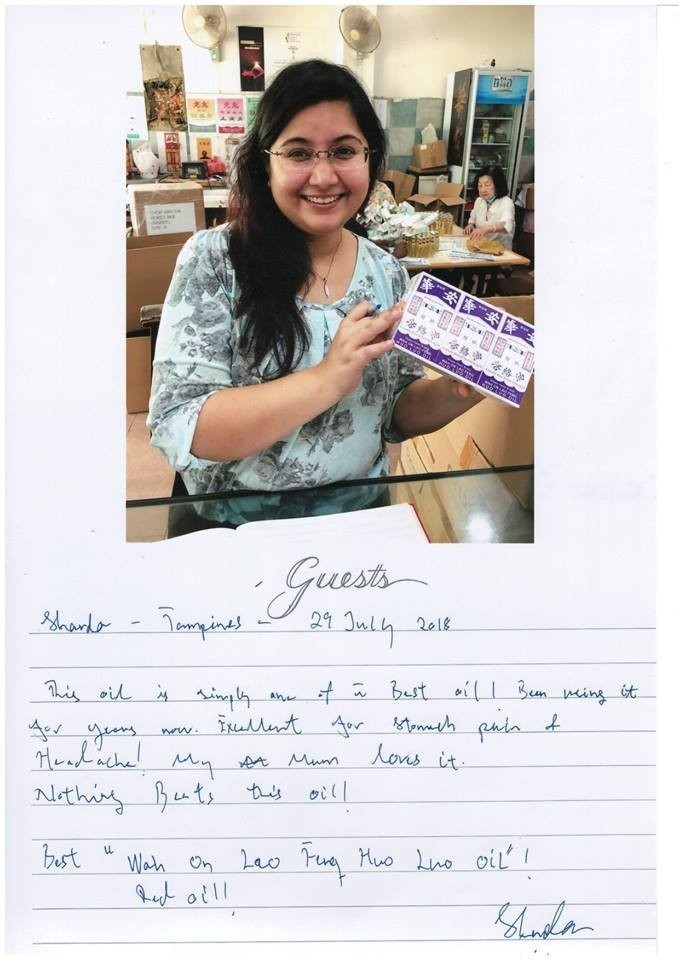 華安
華安
華
Guests
Sharda - Tampines - 29 July 2018
This oil is simply one of ū Best oil! Been using it
for years now. Excellent for stomach pain &
Headache! My Mum loves it.
Nothing Beats this oil!
Best "Wah On Lao Feng Huo Luo oil"!
Red oil!
Sharda